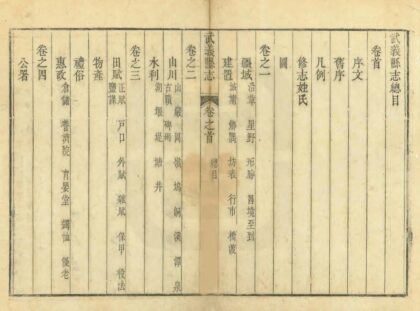 武義縣志總目
卷首
序文
舊序
凡例
修志姓氏
圖
卷之一
疆域 沿革 星野 形勝 四境至到
建置 城池 廨舍 坊表 行市 橋渡
武義縣志 卷之首 總目
卷之二
山川 山 巖 岡 嶺 塢 洞 溪 潭 泉
古蹟
水利 湖 堰 堤 塘 井
卷之三
田賦 正賦 戶口 外賦 雜賦 保甲 役法
鹽課
物產
禮俗
惠政 倉儲 養濟院 育嬰堂 蠲恤 優老
卷之四
公署